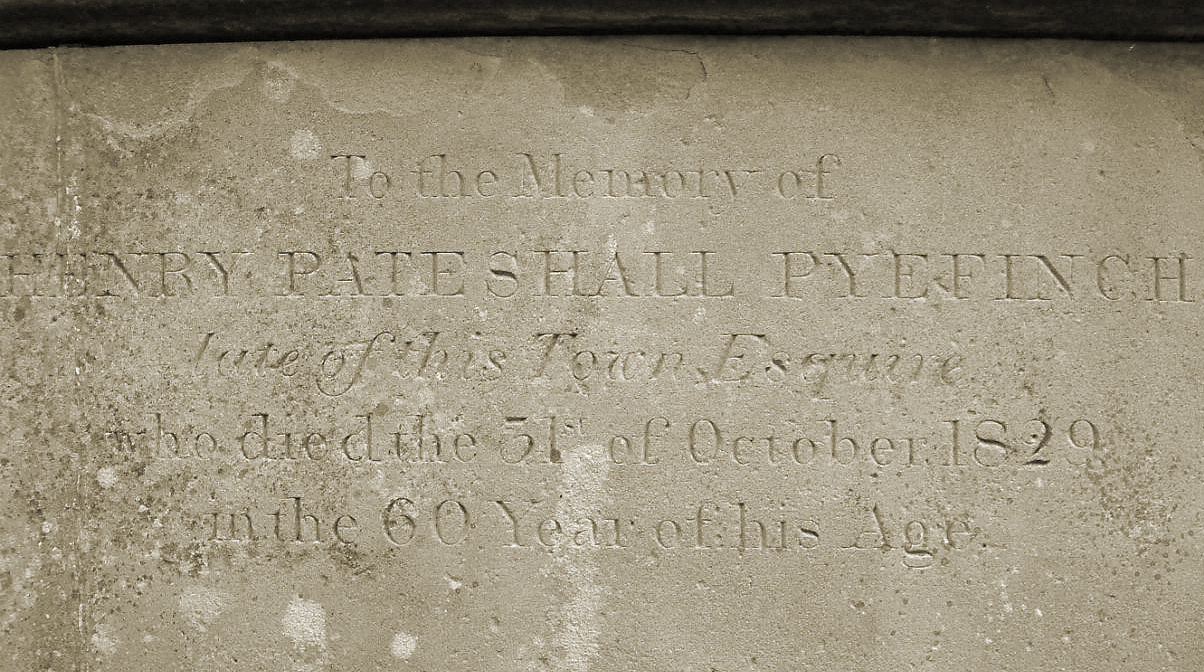 To the Memory of
HENRY PATESHALL PYEFINCH
late of this Town, Esquire
who died the 31st of October 1829
in the 60 Year of his Age.